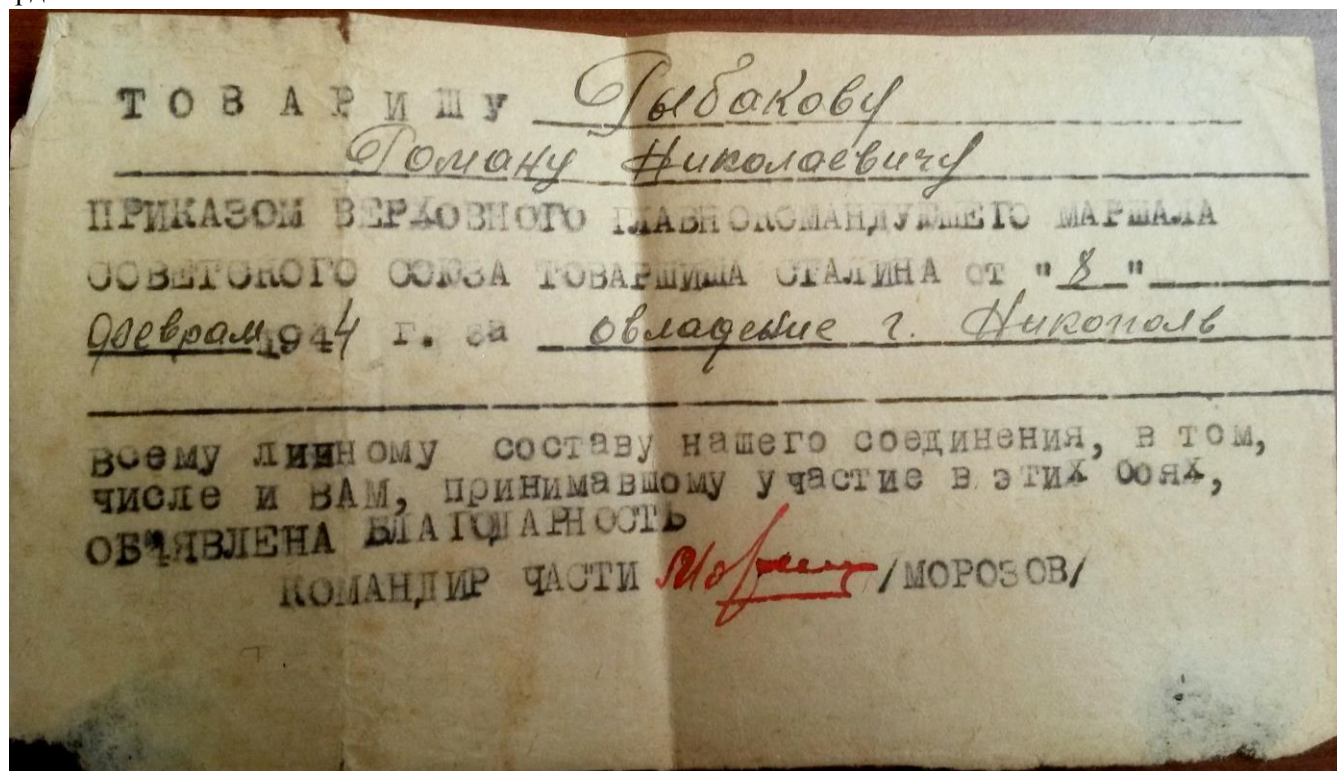 ТОВАРИШУ Рыбакову
Роману Николаевичу
ПРИКАЗОМ ВЕРХОВНОГО ГЛАВНОКОМАНДУЮЩЕГО МАРШАЛА
СОВЕТСКОГО СОЮЗА ТОВАРИЩА СТАЛИНА от "8"
февраля 1944 г. за овладение г. Никополь
всему личному составу нашего соединения, в том,
числе и ВАМ, принимавшому участие в этих боях,
ОБЪЯВЛЕНА БЛАГОДАРНОСТЬ
КОМАНДИР ЧАСТИ /МОРОЗОВ/